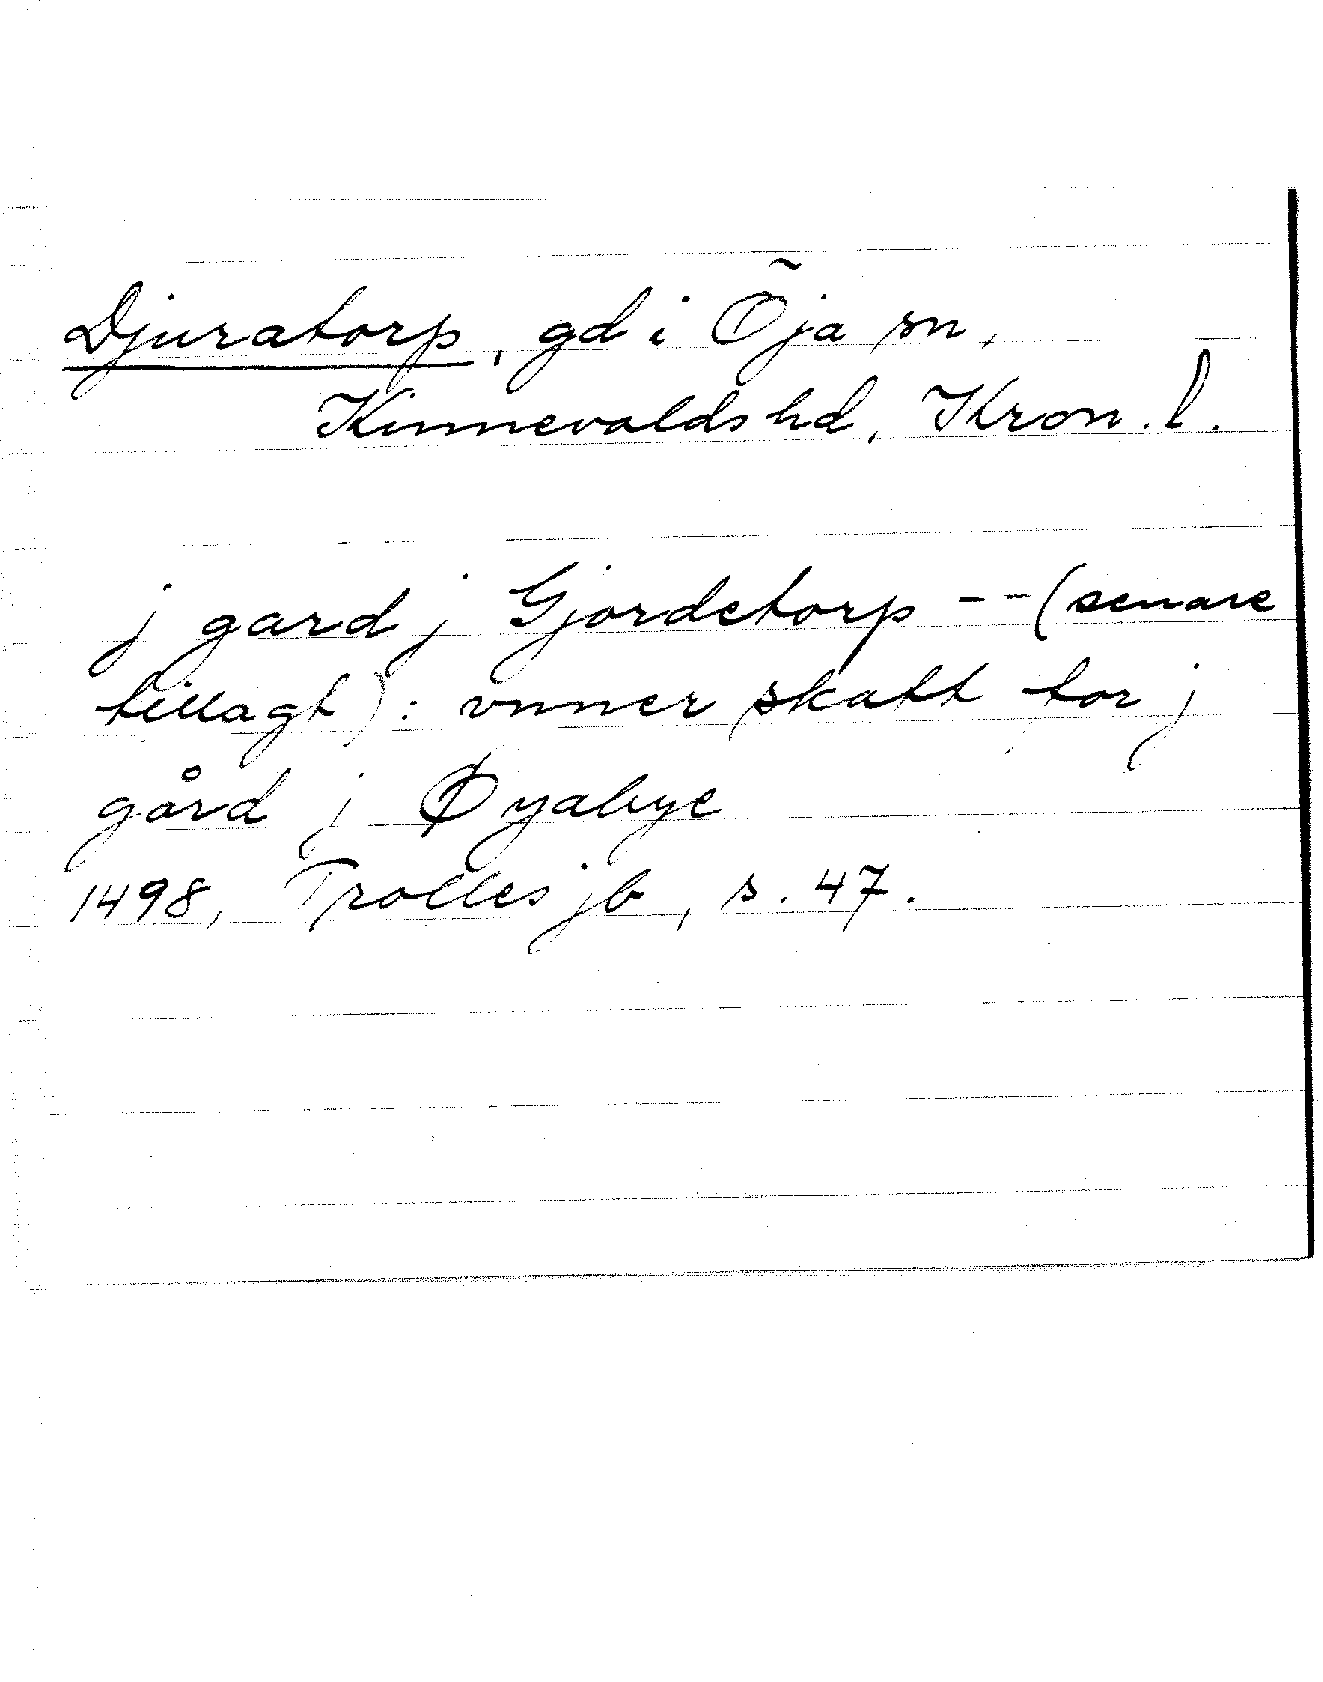 Djuratorp, gd i Öja sn,
Kinnevalds hd, Kron. l.
j gard j Gjordetorp -- (senare
tillagt): vnner skatt tor j
gård j Øyabye
1498, Trolles jb, s. 47.